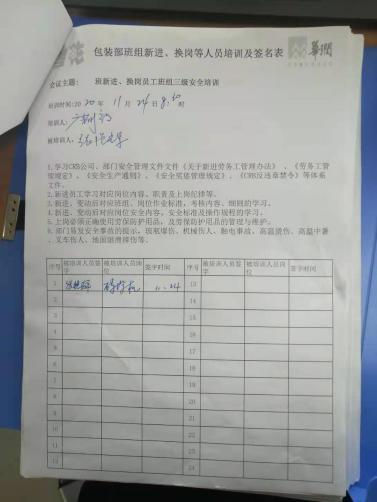 包装部班组新进、换岗等人员培训及签名表
华润
会议主题： 班新进、换岗员工班组三级安全培训
培训时间:2020年11月24日8:30时
培训人:
被培训人:
1.学习CRB公司、部门安全管理文件文件《关于新进劳务工管理办法》、《劳务工管
理规定》、《安全生产通则》、《安全质惩管理规定》、《CRB反违章禁令》等体系
文件。
2.新进员工学习对应岗位内容、职责及上岗纪律等。
3.新进、变动后对应班组、岗位作业标准，考核内容、细则的学习。
4.新进、变动后对应岗位安全内容，安全标准及操作规程的学习。
5.上岗必须正确使用劳保防护用品，及劳保防护用品的管理与维护。
6.部门易发安全事故的提示，圾瓶爆伤、机械伤人、触电事故、高温烫伤、高温中暑
、叉车伤人、地面湿滑操伤等。
序号 被培训人员签字 被培训人员岗位 签字时间 序号 被培训人员签字 被培训人员岗位 签字时间
1 11.24 13
2 14
3 15
4 16
5 17
6 18
7 19
8 20
9 21
10 22
11 23
12 24